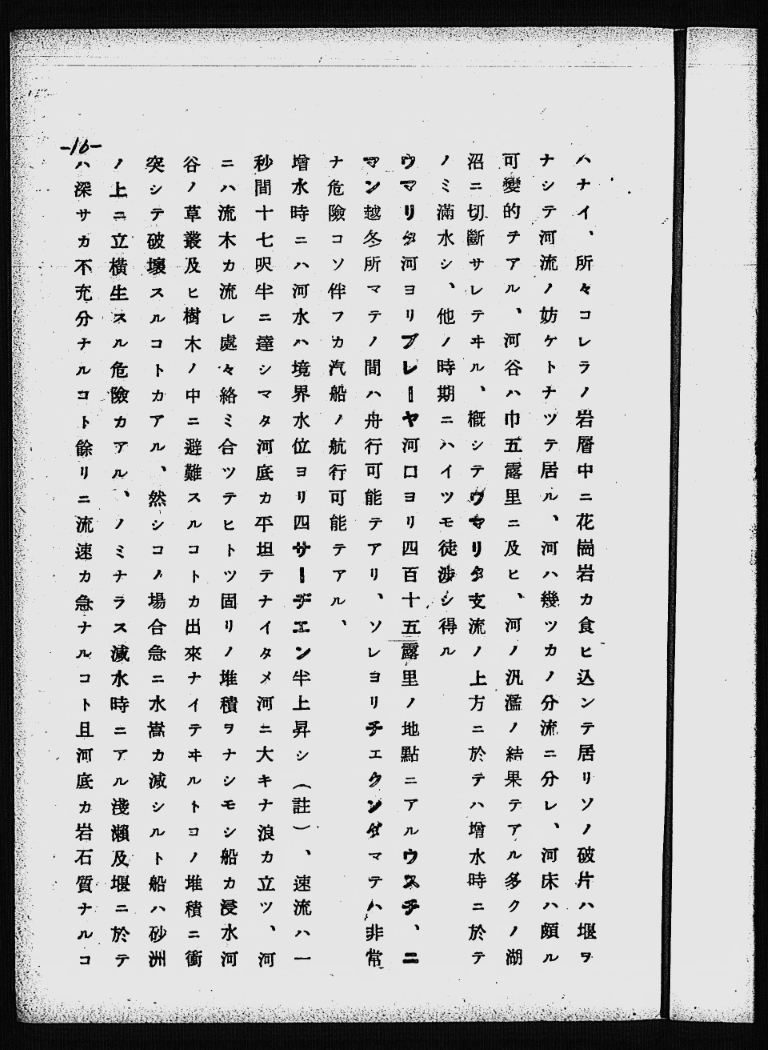 ハナイ、所々コレラノ岩層中ニ花崗岩カ食ヒ込ンテ居リソノ破片ハ堰ヲ
ナシテ河流ノ妨ケトナツテ居ル、河ハ幾ツカノ分流ニ分レ、河床ハ頗ル
可變的テアル、河谷ハ巾五露里ニ及ヒ、河ノ汎濫ノ結果テアル多クノ湖
沼ニ切斷サレテヰル、槪シテウマリタ支流ノ上方ニ於テハ增水時ニ於テ
ノミ滿水シ、他ノ時期ニハイツモ徒涉シ得ル
ウマリタ河ヨリブレーヤ河口ヨリ四百十五露里ノ地點ニアルウスチ、ニ
マン越冬所マテノ間ハ舟行可能テアリ、ソレヨリチエクンダマテハ非常
ナ危險コソ伴フカ汽船ノ航行可能テアル、
增水時ニハ河水ハ境界水位ヨリ四サーヂエン半上昇シ（註）、速流ハ一
秒間十七呎半ニ達シマタ河底カ平坦テナイタメ河ニ大キナ浪カ立ツ、河
ニハ流木カ流レ處々絡ミ合ツテヒトツ固リノ堆積ヲナシモシ船カ浸水河
谷ノ草叢及ヒ樹木ノ中ニ避難スルコトカ出來ナイテヰルトコノ堆積ニ衝
突シテ破壞スルコトカアル、然シコノ場合急ニ水嵩カ減シルト船ハ砂洲
ノ上ニ立橫生スル危險カアル、ノミナラス減水時ニアル淺瀨及堰ニ於テ
ハ深サカ不充分ナルコト餘リニ流速カ急ナルコト且河底カ岩石質ナルコ
-16-